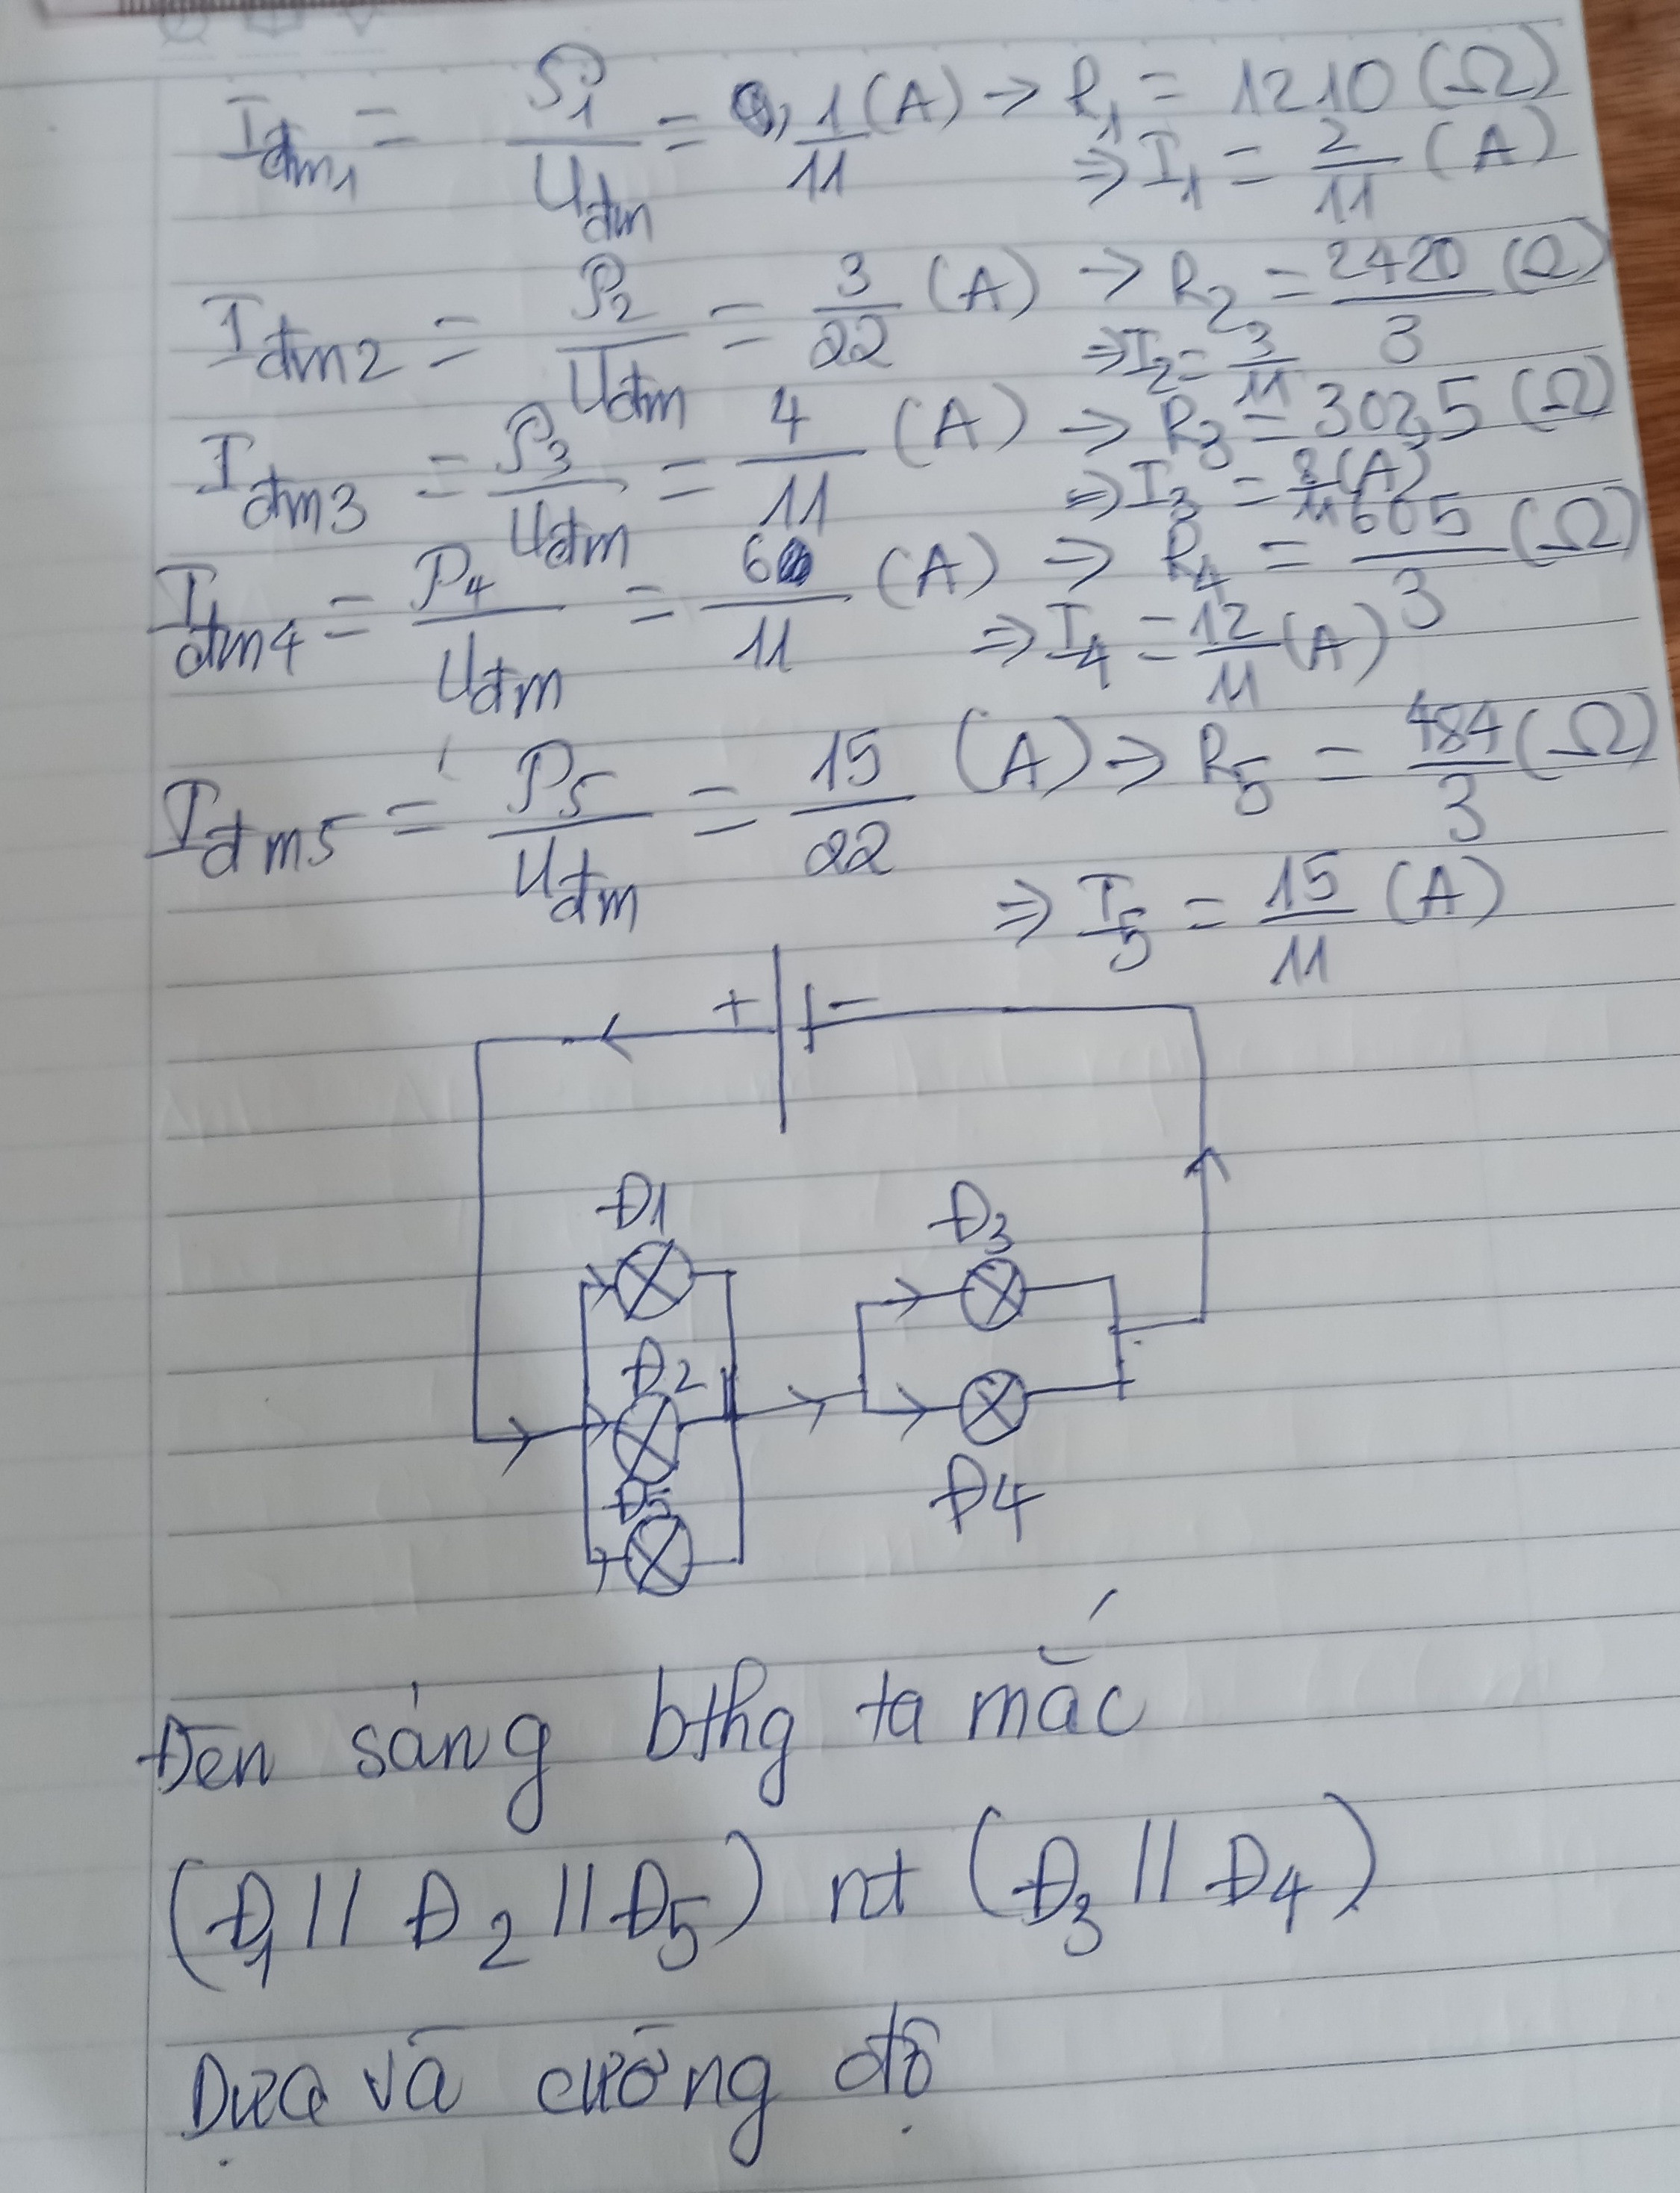 I đm1 = P1/Uđm = 1/11 (A) → R1 = 1210 (Ω)
⇒ I1 = 2/11 (A)
I đm2 = P2/Uđm = 3/22 (A) → R2 = 2420/3 (Ω)
⇒ I2 = 3/11
I đm3 = P3/Uđm = 4/11 (A) → R3 = 302,5 (Ω)
⇒ I3 = 8/11 (A)
I đm4 = P4/Uđm = 6/11 (A) → R4 = 605/3 (Ω)
⇒ I4 = 12/11 (A)
I đm5 = P5/Uđm = 15/22 (A) → R5 = 484/3 (Ω)
⇒ I5 = 15/11 (A)
+ −
Đ1 Đ3
Đ2
Đ5
Đ4
Đèn sáng bthg ta mắc
(Đ1 // Đ2 // Đ5) nt (Đ3 // Đ4)
Dựa và cường độ